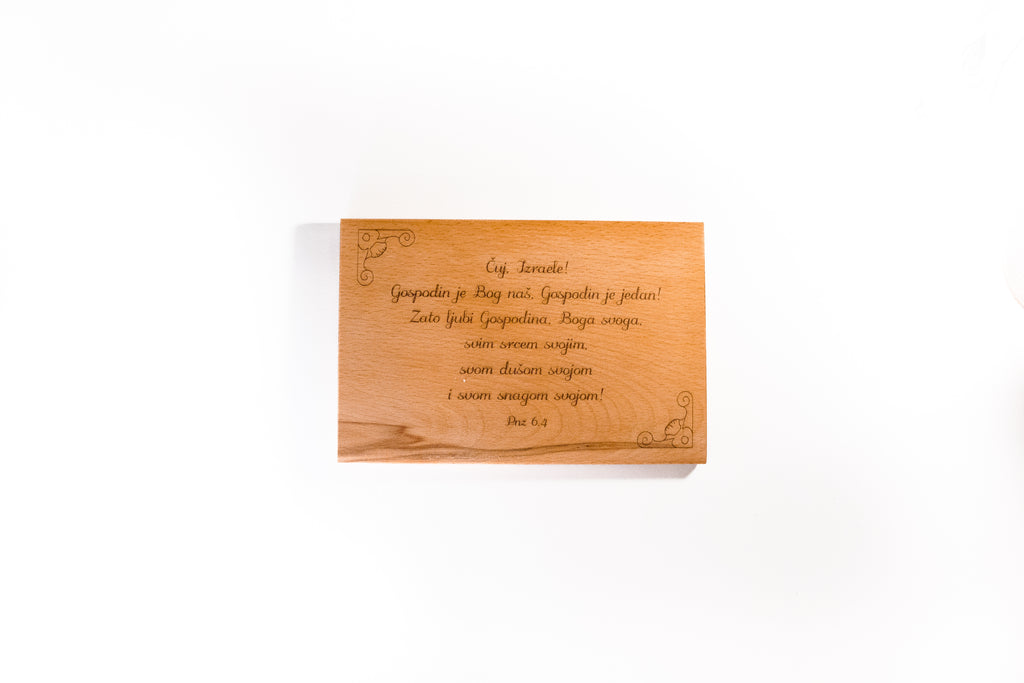 Čuj, Izraele!
Gospodin je Bog naš, Gospodin je jedan!
Zato ljubi Gospodina, Boga svoga,
svim srcem svojim,
svom dušom svojom
i svom snagom svojom!
Pnz 6,4